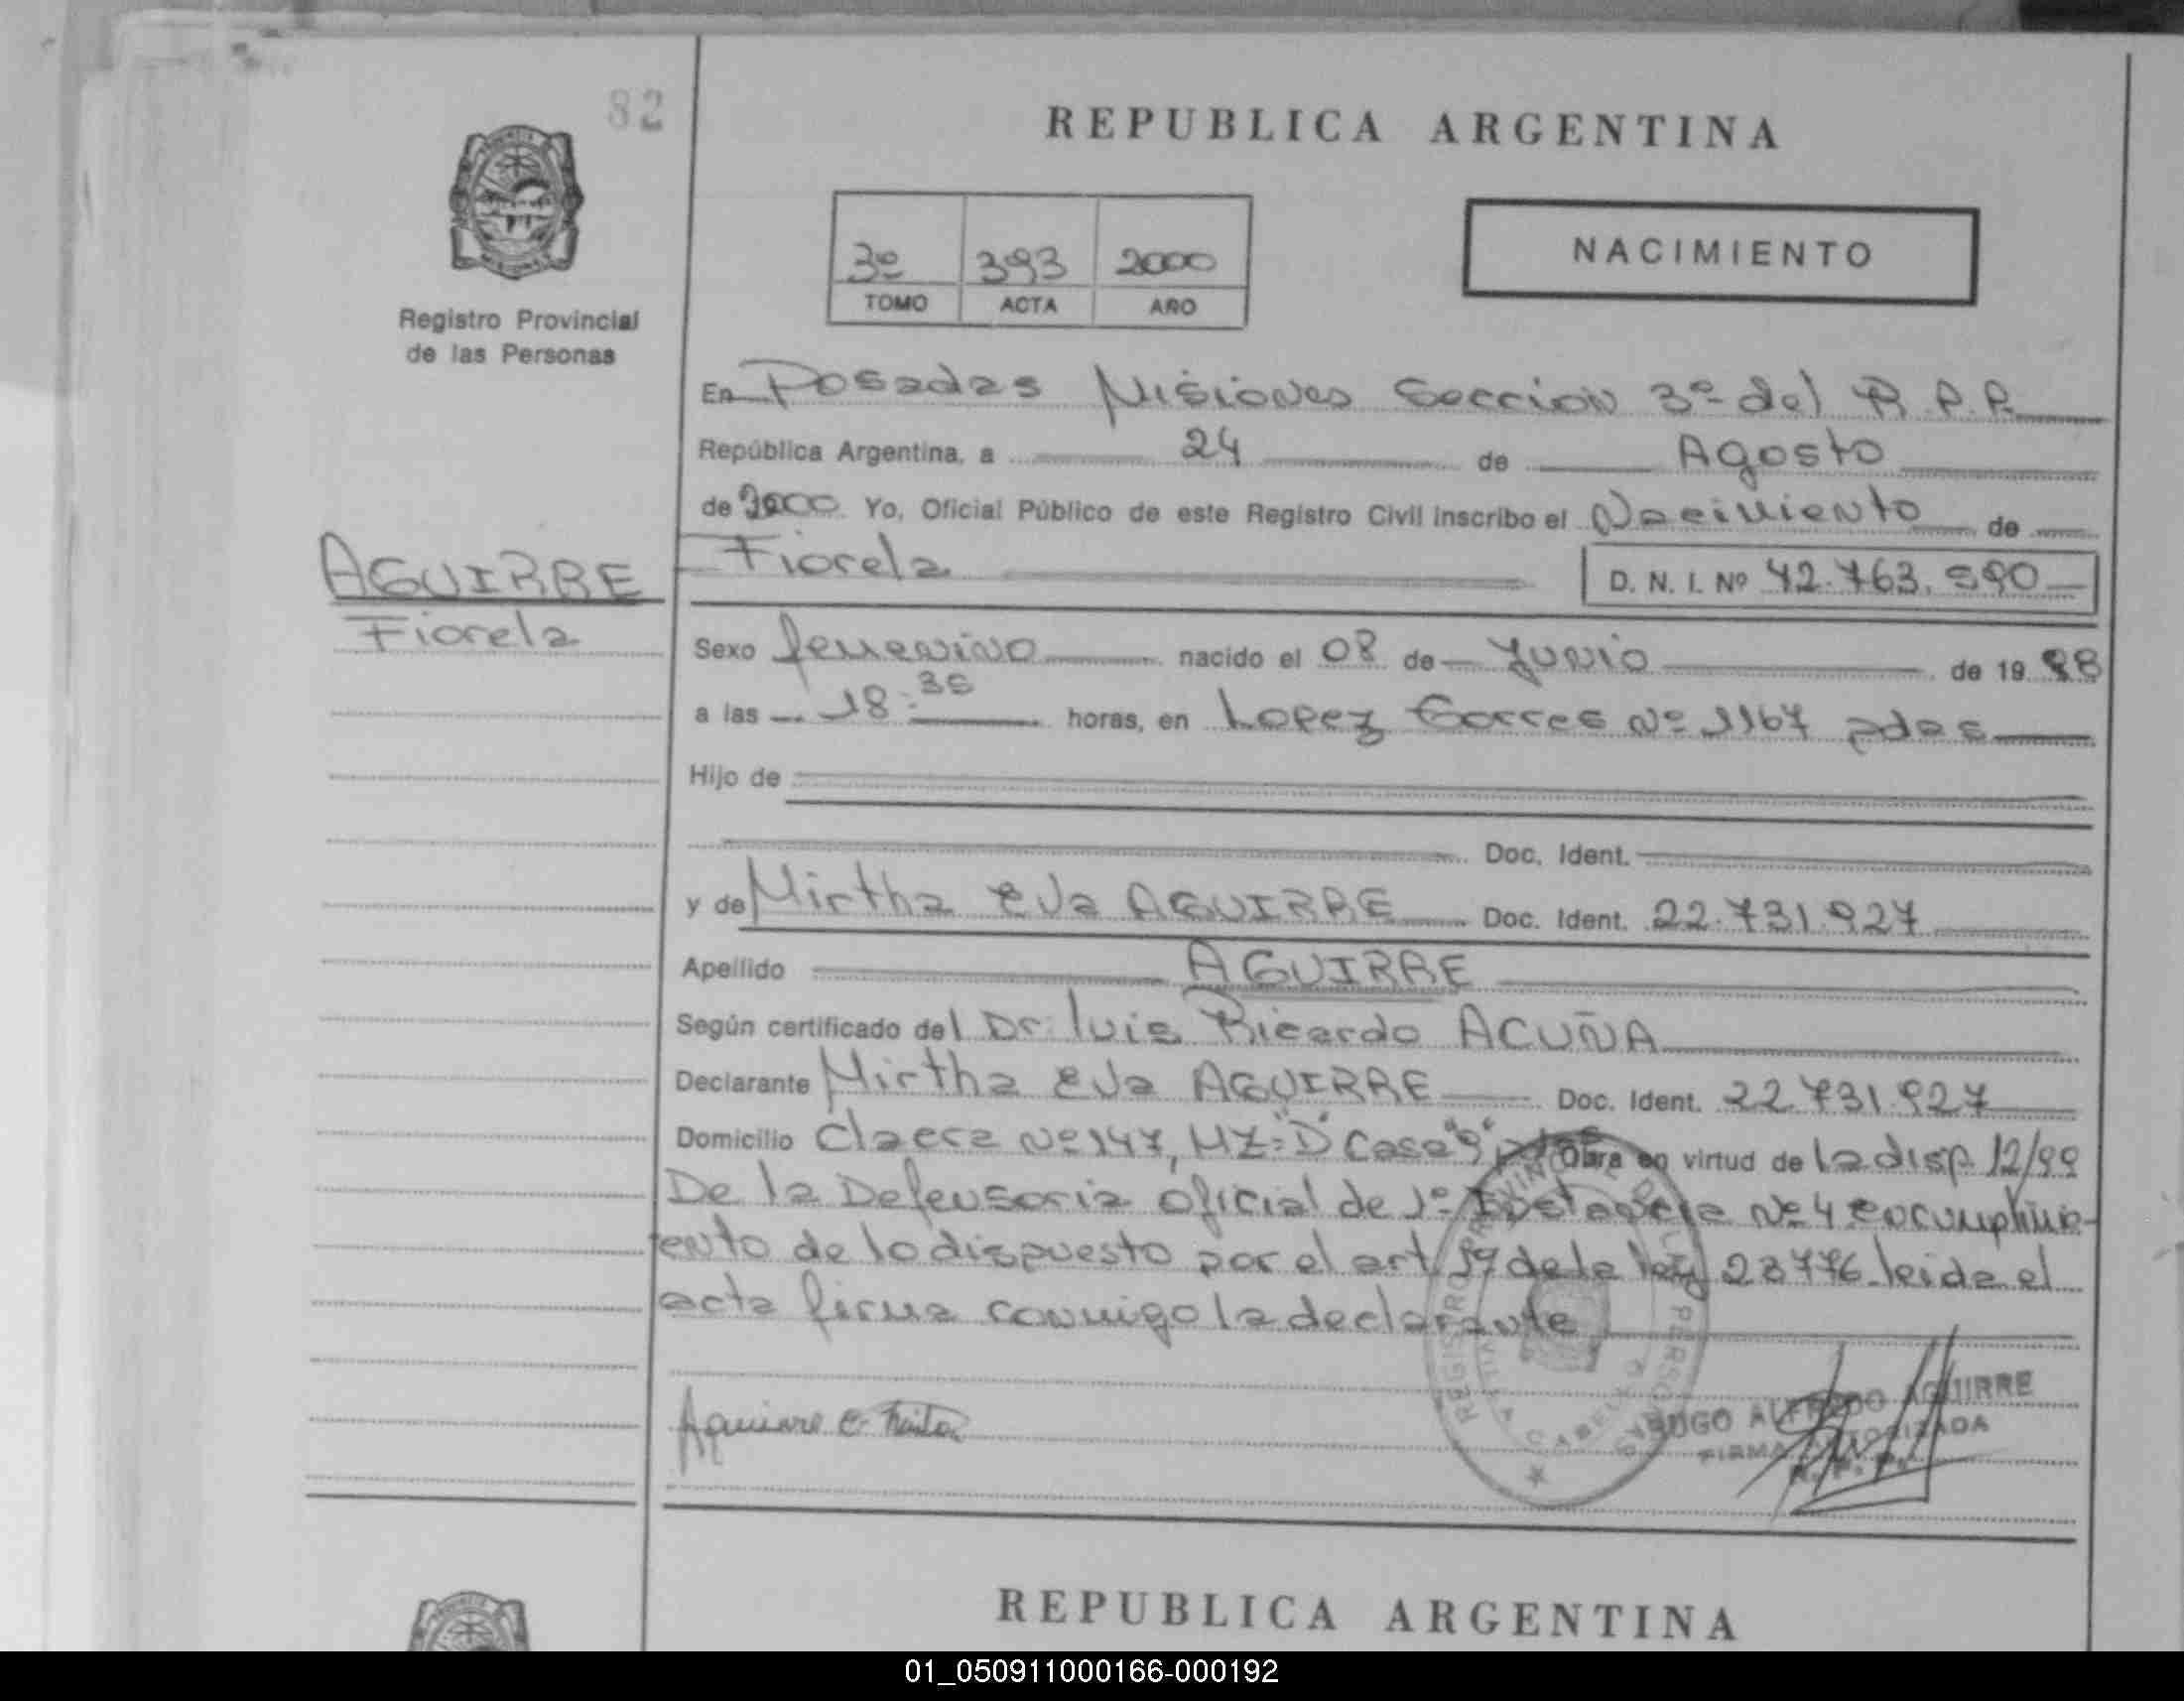 82
REPUBLICA ARGENTINA
3º 393 2000
TOMO ACTA AÑO
NACIMIENTO
Registro Provincial
de las Personas
En Posadas Misiones Seccion 3º del R.P.P.
República Argentina, a 24 de Agosto
de 2000 Yo, Oficial Público de este Registro Civil inscribo el Nacimiento de
AGUIRRE
Fiorela
Fiorela D. N. I. Nº 42.763.590
Sexo femenino nacido el 08 de Junio de 19
a las 18:35 horas, en Lopez Torres Nº 1167 pdas
Hijo de
Doc. Ident.
y de Mirtha Eva AGUIRRE Doc. Ident. 22.731.927
Apellido AGUIRRE
Según certificado del Dr. luis Ricardo ACUÑA
Declarante Mirtha Eva AGUIRRE Doc. Ident. 22.731.927
Domicilio Nº 147, MZ: "D" Casa "9" Obra en virtud de la disp. 12/99
De la Defensoria Oficial de 1º Instancia Nº 4 en cumplimi-
ento de lo dispuesto por el art. 19 de la ley 23776. leida el
acta firma conmigo la declarante
Aguirre E. Mirta
HUGO ALFREDO AGUIRRE
FIRMA AUTORIZADA
R. P. P.
REPUBLICA ARGENTINA
01_050911000166-000192